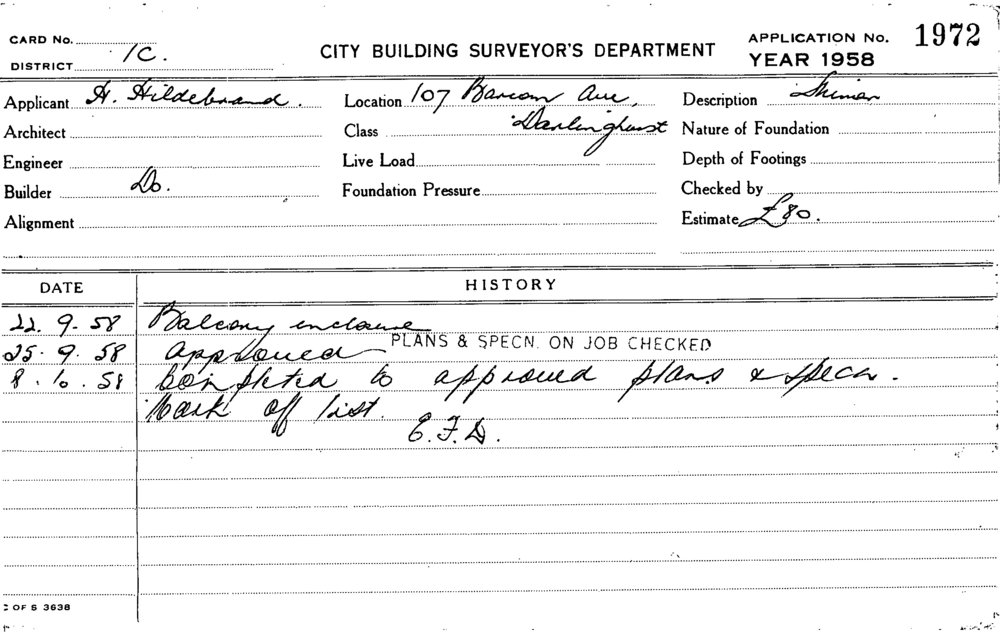 CARD No.
DISTRICT 1C.
CITY BUILDING SURVEYOR'S DEPARTMENT
APPLICATION No. 1972
YEAR 1958
Applicant H. Hildebrand.
Location 107 Barcom Ave,
Description
Architect
Class Darlinghurst
Nature of Foundation
Engineer
Live Load
Depth of Footings
Builder Do.
Foundation Pressure
Checked by
Alignment
Estimate £80.
DATE
HISTORY
22. 9. 58 Balcony enclosure
25. 9. 58 approved PLANS & SPECN. ON JOB CHECKED
8. 10. 58 Completed to approved plans & specn.
Mark off list.
E.F.D.
C OF S 3638